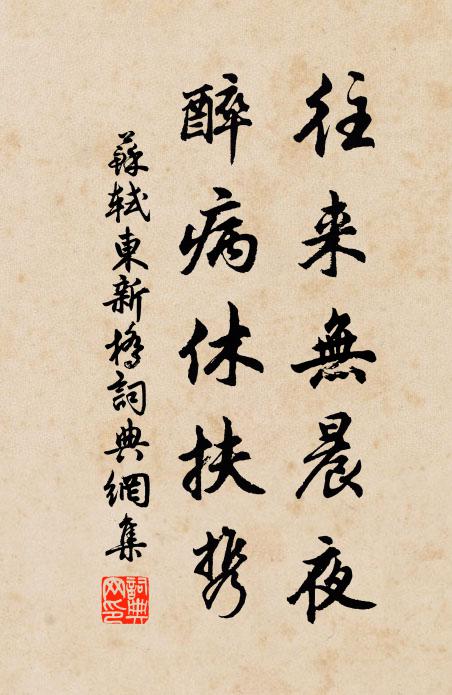 往来無晨夜
醉病休扶携
蘇軾東新橋詞典網集
詞典
网印